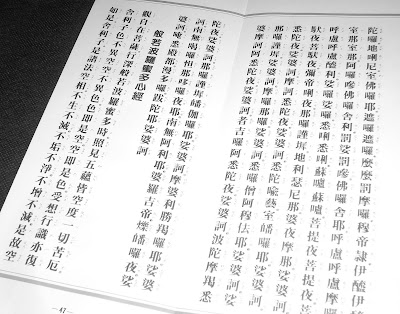 陀囉地唎尼室佛囉耶遮囉遮囉麼麼罰摩囉穆帝隸伊醯伊
室那室那阿嘇佛囉舍利罰娑罰嘇佛囉舍耶呼嚧呼嚧摩
呼嚧呼嚧醯利娑囉娑囉悉唎悉唎蘇嚧蘇嚧菩提夜菩提夜
馱夜菩馱夜彌帝唎夜那囉謹墀地利瑟尼那婆夜摩那娑
悉陀夜娑婆訶摩訶悉陀夜娑婆訶悉陀喻藝室皤囉
婆訶那囉謹墀娑婆訶摩囉那囉娑婆訶悉囉僧阿穆佉耶娑婆
婆摩訶阿悉陀夜娑婆訶者吉囉阿悉陀夜娑婆訶波陀摩羯悉
陀夜娑婆訶那囉謹墀皤伽囉耶娑婆訶摩婆利勝羯囉耶娑婆
訶南無喝囉怛那哆囉夜耶南無阿利耶婆羅吉帝爍皤囉夜娑
婆訶唵悉殿都漫多囉跋陀耶娑婆訶
般若波羅蜜多心經
觀自在菩薩行深般若波羅蜜多時照見五蘊皆空度一切苦厄
舍利子色不異空空不異色色即是空空即是色受想行識亦復
如是舍利子是諸法空相不生不滅不垢不淨不增不減是故空
—47—